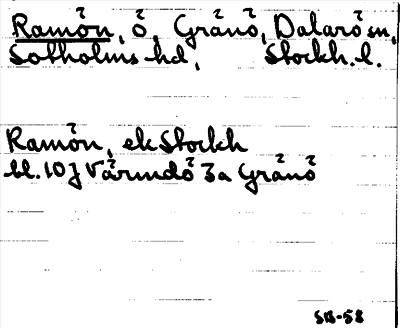 Ramön, ö, Gränö, Dalarö sn,
Sotholms hd, Stockh. l.
Ramön, ek Stockh
bl. 10 J Värmdö 3a Gränö
SB-58